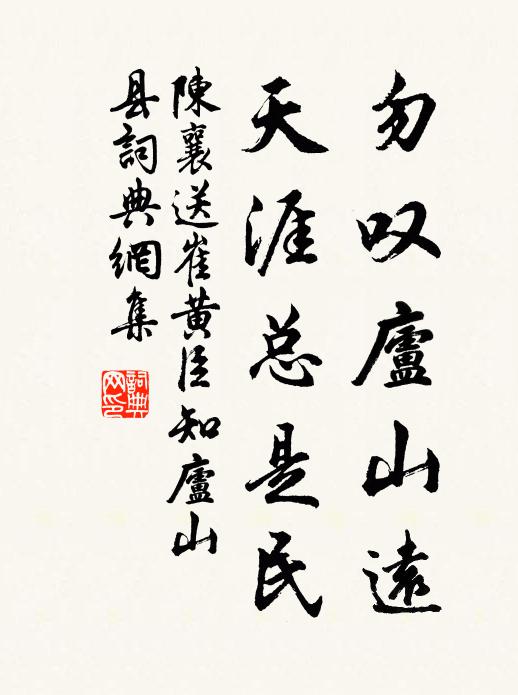 勿叹廬山遠
天涯总是民
陳襄送崔黄臣知廬山
县詞典網集
詞典网印